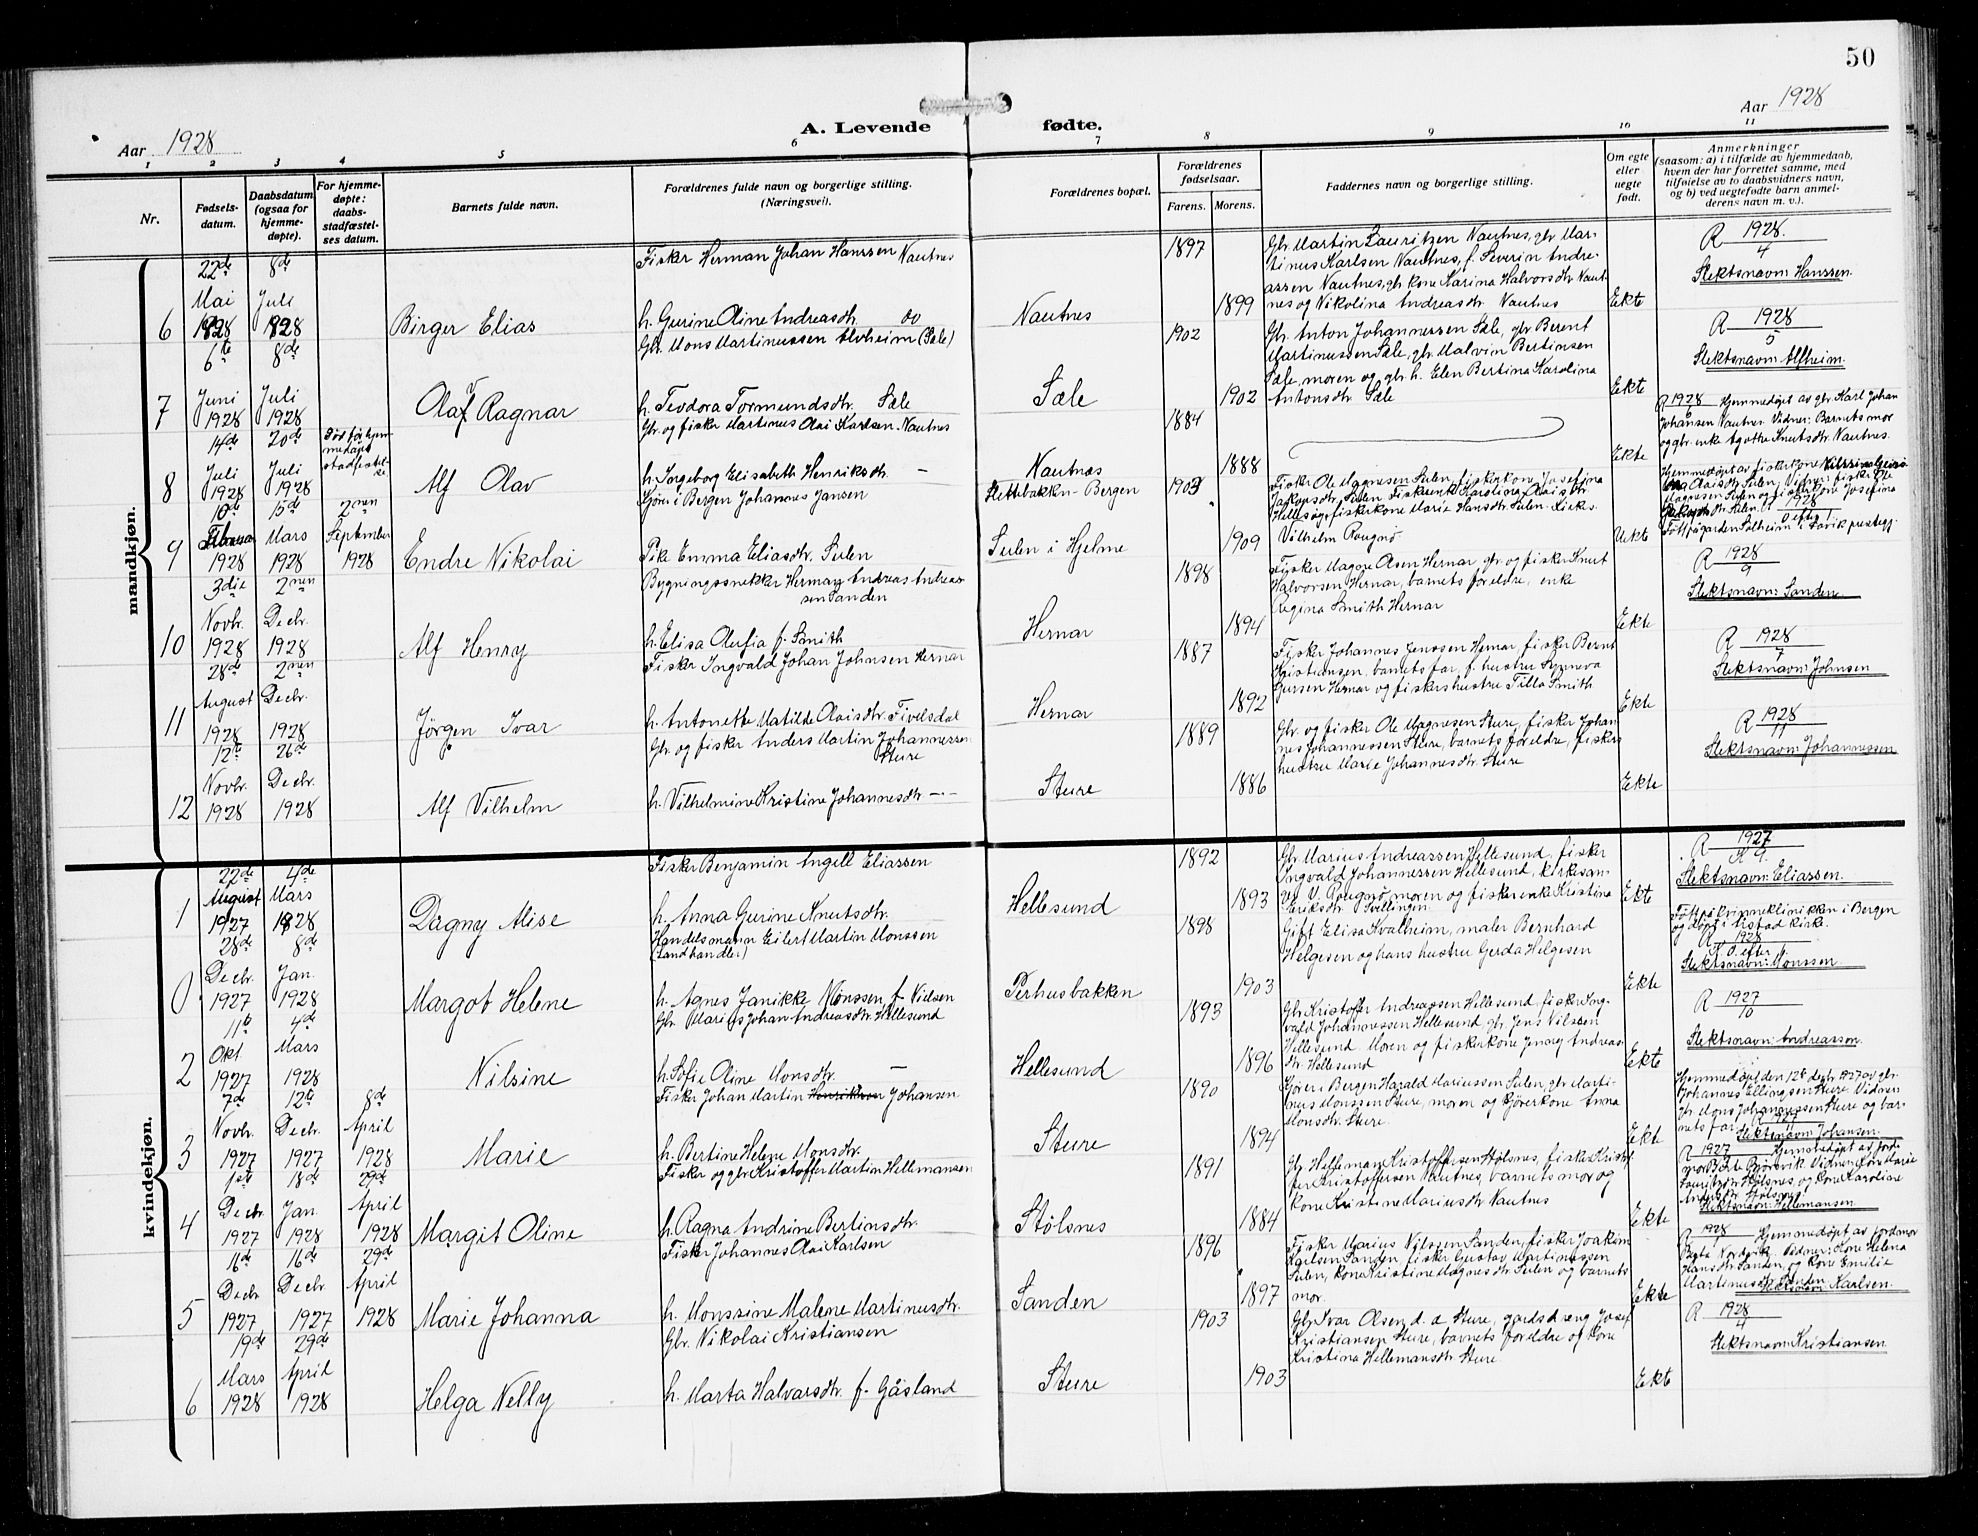 50
Aar 1928
A. Levende fødte.
Aar 1928
1 2 3 4 5 6 7 8 9 10 11
Nr.
Fødsels-
datum.
Daabsdatum
(ogsaa for
hjemme-
døpte).
For hjemme-
døpte:
daabs-
stadfæstel-
ses datum.
Barnets fulde navn.
Forældrenes fulde navn og borgerlige stilling.
(Næringsvei).
Forældrenes bopæl.
Forældrenes
fødselsaar.
Farens. Morens.
Faddernes navn og borgerlige stilling.
Om egte
eller
uegte
født.
Anmerkninger
(saasom: a) i tilfælde av hjemmedaab,
hvem der har forrettet samme, med
tilføielse av to daabsvidners navn,
og b) ved uegtefødte barn anmel-
derens navn m. v.).
mandkjøn.
6
22de Mai 1928
8de Juli 1928
Birger Elias
Fisker Herman Johan Hanssen Nautnes
h. Gurine Oline Andreasdtr.
Nautnes
1897
1899
Gbr. Martin Lauritzen Nautnes, gbr. Mar-
tinus Karlsen Nautnes, f. Severin Andre-
assen Nautnes, gb. kone Marina Halvorsdtr. Naut-
nes og Nikolina Andreasdtr. Nautnes
Ekte
R 1928 / 4
Slektsnavn: Hanssen.
7
6te Juni 1928
8de Juli 1928
Olaf Ragnar
Gbr. Mons Martinussen Alvheim (Sæle)
h. Teodora Tormundsdtr. Sæle
Sæle
1902
1902
Gbr. Anton Johannessen Sæle, gbr Berent
Martinussen Sæle, gbr. Malvin Bertinsen
Sæle, moren og gbr. h. Elen Bertina Karolina
Antonsdtr. Sæle
Ekte
R 1928 / 5
Slektsnavn: Alfheim.
8
14de Juli 1928
20de Juli 1928
Död för hjem-
medåpst
stadfestel-
se
Alf Olav
Gbr. og fisker Martinus Olai Karlsen Nautnes
h. Ingeborg Elisabeth Henriksdtr. –
Nautnes
1884
1888
Ekte
R 1928 / 6 Hjemmedöpt av gbr. Karl Johan
Johansen Nautnes. Vidner: Barnets mor
og gbr. enke Agathe Knutsdtr. Nautnes.
9
10de 1928
15de Mars 1928
2nen September 1928
Endre Nikolai
Sjöm. i Bergen Johannes Jansen
Pike Emma Eliasdtr. Sulen
Slettebakken - Bergen
Sulen i Hjelme
1903
1909
Fisker Ole Magnesen Sulen, fiskerkone Josefina
Jakobsdtr. Sulen. Fiskerenk. Karolina Olaisdtr.
Hellesöy, fiskerkone Marie Hansdtr. Sulen. Kirkes.
Vilhelm Rougnö
Uekte
Magnesen Sulen og fiskerkone Josefina
Jakobsdtr. Sulen. 1928
10
3die Novbr. 1928
2nen Decbr. 1928
Alf Henry
Bygningssnekker Herman Andreas Andreas-
sen Sanden
h. Elisa Olufia f. Smith
Hernar
1898
1894
Fisker Magne Olsen Hernar, gbr. og fisker Knut
Halvorsen Hernar, barnets foreldre, enke
Regina Smith Hernar
Ekte
R 1928 / 9
Slektsnavn: Sanden
11
28de August 1928
2nen Decbr. 1928
Jörgen Ivar
Fisker Ingvald Johan Johnsen Hernar
h. Antonette Matilde Olaisdtr. Tivelsdal
Hernar
1887
1892
Fisker Johannes Jenssen Hernar, fisker Bernt
Kristiansen, barnets far, f. hustru Synneva
Gursen Hernar og fiskershustru Tilla Smith
Ekte
R 1928 / 7
Slektsnavn: Johnsen
12
12te Novbr. 1928
26de Decbr. 1928
Alf Vilhelm
Gbr. og fisker Anders Martin Johannessen
Sture
h. Vilhelmine Kristine Johannesdtr. –
Sture
1889
1886
Gbr. og fisker Ole Magnesen Sture, fisker Johan-
nes Johannessen Sture, barnets foreldre, fisker-
hustru Marie Johannesdtr. Sture
Ekte
R 1928 / 11
Slektsnavn: Johannessen
kvindekjøn.
1
22de August 1927
4de Mars 1928
Dagny Alise
Fisker Benjamin Ingell Eliassen
h. Anna Gurine Knutsdtr.
Hellesund
1892
1893
Gbr. Marius Andreassen Hellesund, fisker
Ingvald Johannessen Hellesund, kirkesan-
ger V. Rougnö, moren og fiskerenke Kristine
Eriksdtr. Sællingen
Ekte
R 1927 / K 9.
Slektsnavn: Eliassen.
0
28de Decbr. 1927
8de Jan. 1928
Margot Helene
Handelsmann Eilert Martin Monssen
(Landhandler)
h. Agnes Janikke Monssen f. Nielsen
Perhusbakken
1898
1903
Gift Elisa Kvalheim, maler Bernhard
Helgesen og hans hustru Gerda Helgesen
Ekte
Fött på kvinneklinikken i Bergen
og döpt i Årstad kirke.
R 1928 / K 0. efter
Slektsnavn: Monssen.
2
11te Okt. 1927
4de Mars 1928
Nilsine
Gbr. Marius Johan Andreasdtr. Hellesund
h. Sofie Oline Monsdtr. –
Hellesund
1893
1896
Gbr Kristoffer Andreassen Hellesund, fisker Ing-
vald Johannessen Hellesund, gbr Jens Nilssen
Hellesund. Moren og fiskerkone Jenny Andreas-
dtr. Hellesund
Ekte
R 1927 / 10
Slektsnavn: Andreasson.
3
7de Novbr. 1927
12te Decbr. 1927
8de April 1928
Marie
Fisker Johan Martin Henriksen Johansen
h. Bertine Helene Monsdtr.
Sture
1890
1894
Kjörer i Bergen Harald Mariussen Sulen, gbr. Marti-
nus Monssen Sture, moren og kjörerkone Anna
Monsdtr. Sture.
Ekte
Hjemmedöpt den 12te decbr. 1927 av gbr.
Johannes Ellingsen Sture. Vidner:
Gbr. Mons Johannessen Sture og bar-
nets far. R 1927 / 11
Slektsnavn: Johansen.
4
1ste Decbr. 1927
18de Jan. 1928
29de April 1928
Margit Oline
Fisker og gbr Kristoffer Martin Hellemansen
h. Ragna Andrine Bertinsdtr.
Stölsnes
1891
1884
Gbr. Helleman Kristoffersen Stölsnes, fisker Kristof-
fer Kristoffersen Nautnes, barnets mor og
kone Kristine Mariusdtr. Nautnes
Ekte
R 1927 Hjemmedöpt av jord-
mor Berte Bjørsvik. Vidner: Marie
Lauritzdtr. Stölsnes, og kone Karoliane
Andersdtr. Stölsnes
Slektsnavn: Hellemansen.
5
16de Decbr. 1927
16de Decbr. 1927
29de April 1928
Marie Johanna
Fisker Johannes Olai Karlsen
h. Monssine Malene Martinusdtr.
Sanden
1896
1897
Fisker Marius Nilssen Sanden, fisker Joakim
Karlsen Sanden, fisker Gustav Martinussen
Sulen, kone Kristine Magnesdtr. Sulen og barnets
mor.
Ekte
R 1928 / 1 Hjemmedöpt av jordmor
Berta Nordvik. Vidner: Kone Helena
Hansdtr. Sanden og kone Emilie
Martinusdtr. Sanden
Slektsnavn: Karlsen.
6
19de Mars 1928
29de April 1928
Helga Nelly
Gbr. Nikolai Kristiansen
h. Marta Halvarsdtr. f. Gåsland
Sture
1903
1903
Gbr. Ivar Olsen d. a Sture, gardsdreng Josef
Kristiansen Sture, barnets foreldre og kone
Kristina Hellemansdtr. Sture.
Ekte
R 1928 / 4
Slektsnavn: Kristiansen.